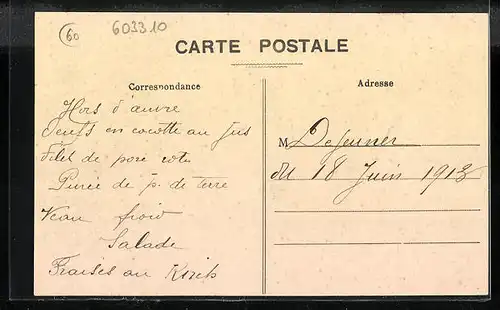 60
603310
CARTE POSTALE
Correspondance
Adresse
Hors d'œuvre
Oeufs en cocotte au jus
Filet de porc roti
Purée de p. de terre
Veau froid
Salade
Fraises au Kirch
M Dejeuner
du 18 Juin 1913